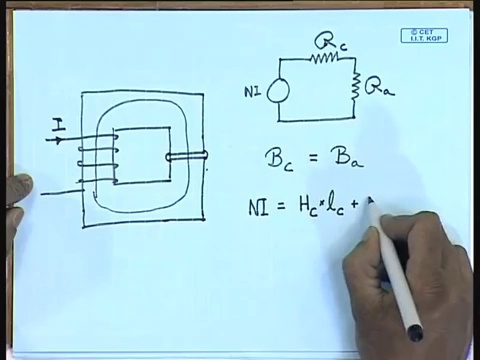 © CET
I.I.T. KGP
R_c
NI
R_a
I
B_c = B_a
NI = H_c * l_c +